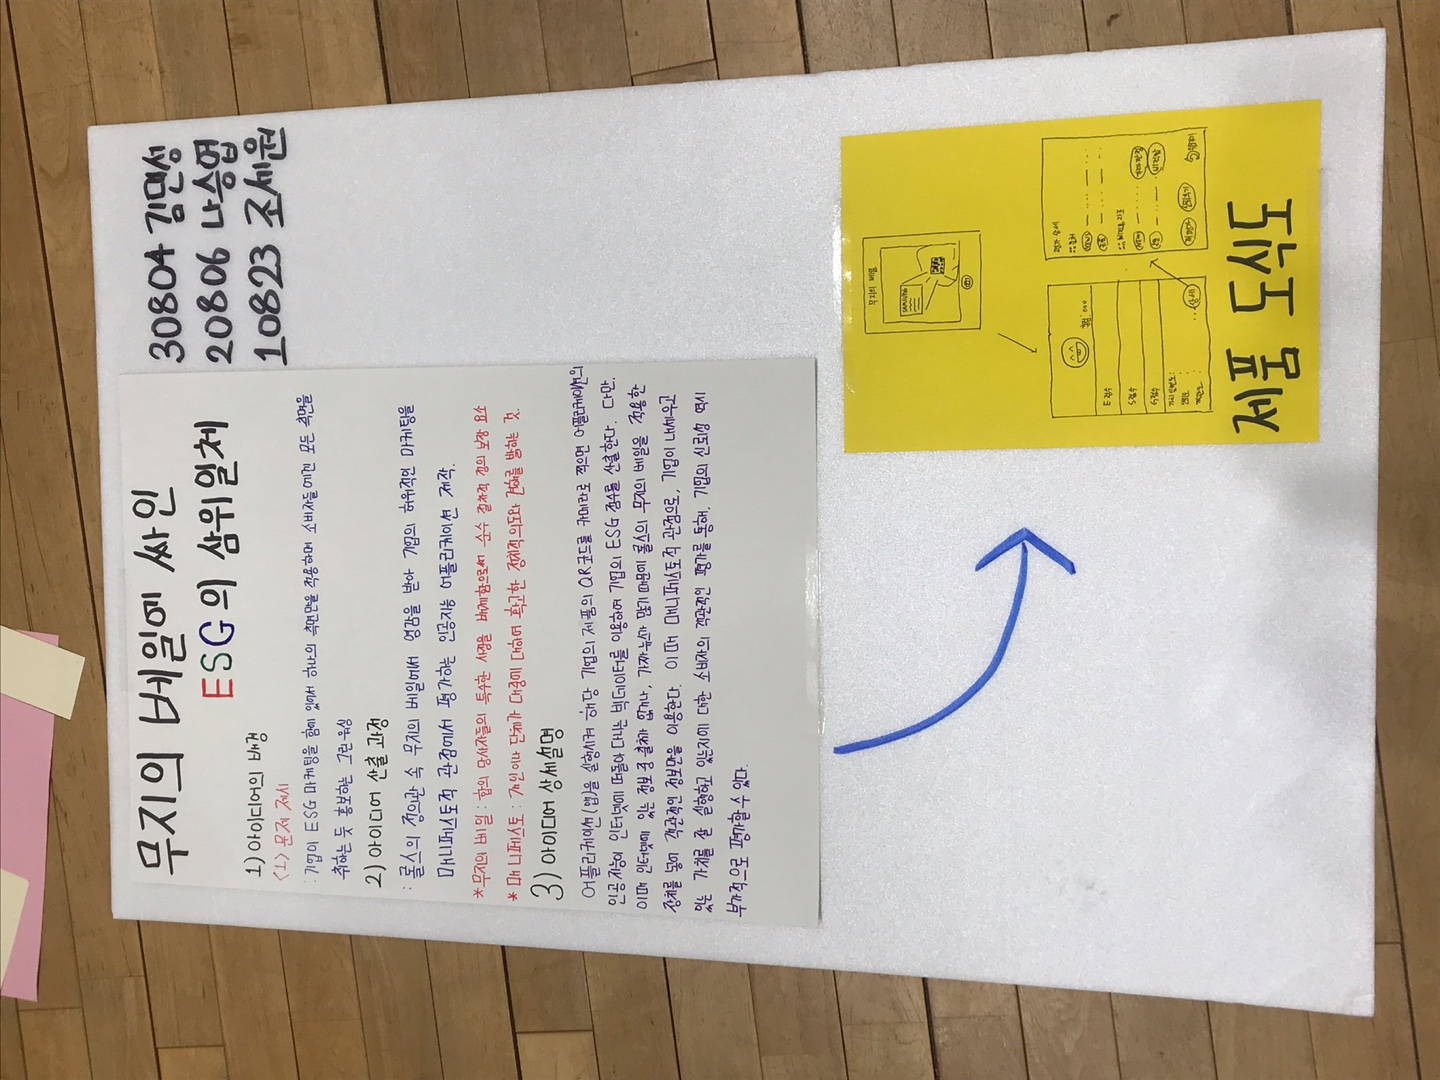 30804 김민성
20806 나승엽
10823 조세원
무지의 베일에 싸인
ESG의 삼위일체
1) 아이디어의 배경
<1> 문제 제시
: 기업이 ESG 마케팅을 함에 있어서 하나의 측면만을 적용하며 소비자들에겐 모든 측면을
취하는 듯 홍보하는 그린워싱
2) 아이디어 산출 과정
: 롤스의 정의관 속 무지의 베일에서 영감을 받아 기업의 허위적인 마케팅을
매니페스토적 관점에서 평가하는 인공지능 어플리케이션 제작.
*무지의 베일 : 합의 당사자들의 특수한 사정을 배제함으로써 순수 절차적 정의 보장 요소
* 매니페스토 : 개인이나 단체가 대중에 대하여 확고한 정치적 의도와 견해를 밝히는 것
3) 아이디어 상세설명
어플리케이션(앱)을 실행시켜 해당 기업의 제품의 QR코드를 카메라로 찍으면 어플리케이션의
인공지능이 인터넷에 떠돌아 다니는 빅데이터를 이용하여 기업의 ESG 점수를 산출한다. 다만,
이때 인터넷에 있는 정보 중 출처가 없거나, 가짜뉴스가 많기 때문에 롤스의 무지의 베일을 적용한
장치를 넣어 객관적인 정보만을 이용한다. 이때 매니페스토적 관점으로, 기업이 내세우고
있는 가치를 잘 실행하고 있는지에 대한 소비자의 객관적인 평가를 통해, 기업의 신뢰성 역시
부가적으로 평가할 수 있다.
무지의 베일
SAMSUNG
E점수
S점수
G점수
상세
평가 상세
출처
제품 도식도